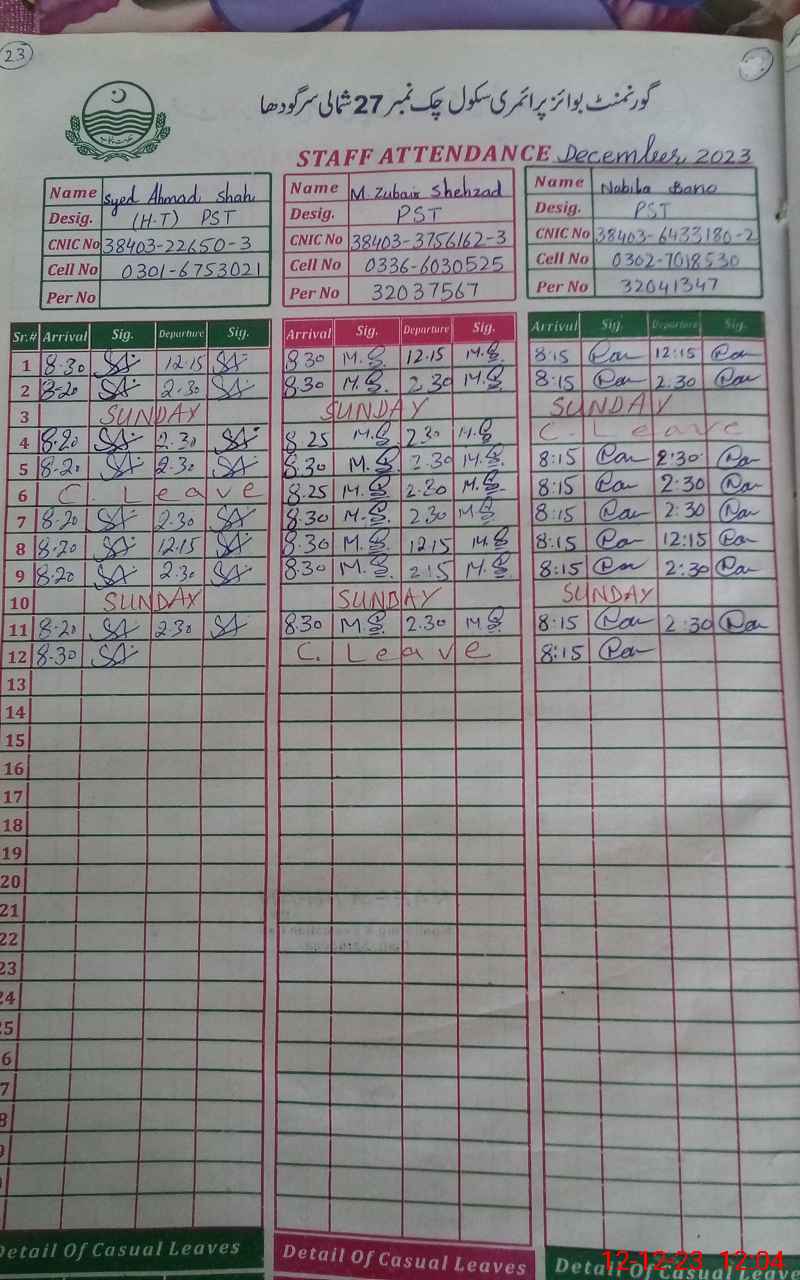 23
گورنمنٹ بوائز پرائمری سکول چک نمبر 27 شمالی سرگودھا
STAFF ATTENDANCE December 2023
Name Syed Ahmad Shah Name M. Zubair Shehzad Name Nabila Bano
Desig. (H.T) PST Desig. PST Desig. PST
CNIC No 38403-22650-3 CNIC No 38403-3756162-3 CNIC No 38403-6433180-2
Cell No 0301-6753021 Cell No 0336-6030525 Cell No 0302-7018530
Per No Per No 32037567 Per No 32041347
Sr.# Arrival Sig. Departure Sig. Arrival Sig. Departure Sig. Arrival Sig. Departure Sig.
1 8.30 SA 12.15 SA 8.30 M.S 12.15 M.S 8:15 12:15
2 8.20 SA 2.30 SA 8.30 M.S 2.30 M.S 8:15 2.30
3 SUNDAY SUNDAY SUNDAY
4 8.20 SA 2.30 SA 8.25 M.S 2.30 M.S C. Leave
5 8.20 SA 2.30 SA 8.30 M.S 2.30 M.S 8:15 2:30
6 C. Leave 8.25 M.S 2.30 M.S 8:15 2:30
7 8.20 SA 2.30 SA 8.30 M.S 2.30 M.S 8:15 2:30
8 8.20 SA 12.15 SA 8.30 M.S 12.15 M.S 8:15 12:15
9 8.20 SA 2.30 SA 8.30 M.S 2.15 M.S 8:15 2:30
10 SUNDAY SUNDAY SUNDAY
11 8.20 SA 2.30 SA 8.30 M.S 2.30 M.S 8:15 2:30
12 8.30 SA C. Leave 8:15
13
14
15
16
17
18
19
20
21
22
23
24
25
6
7
8
Detail Of Casual Leaves Detail Of Casual Leaves Detail Of Casual Leaves
12-12-23 12:04